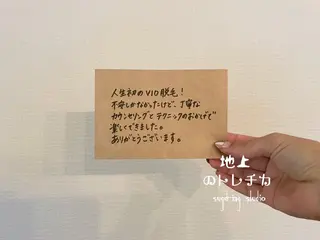 人生初のVIO脱毛!
不安しかなかったけど、丁寧な
カウンセリングとテクニックのおかげで
楽しくできました。
ありがとうございます。
地上
のトレチカ
sugaring studio